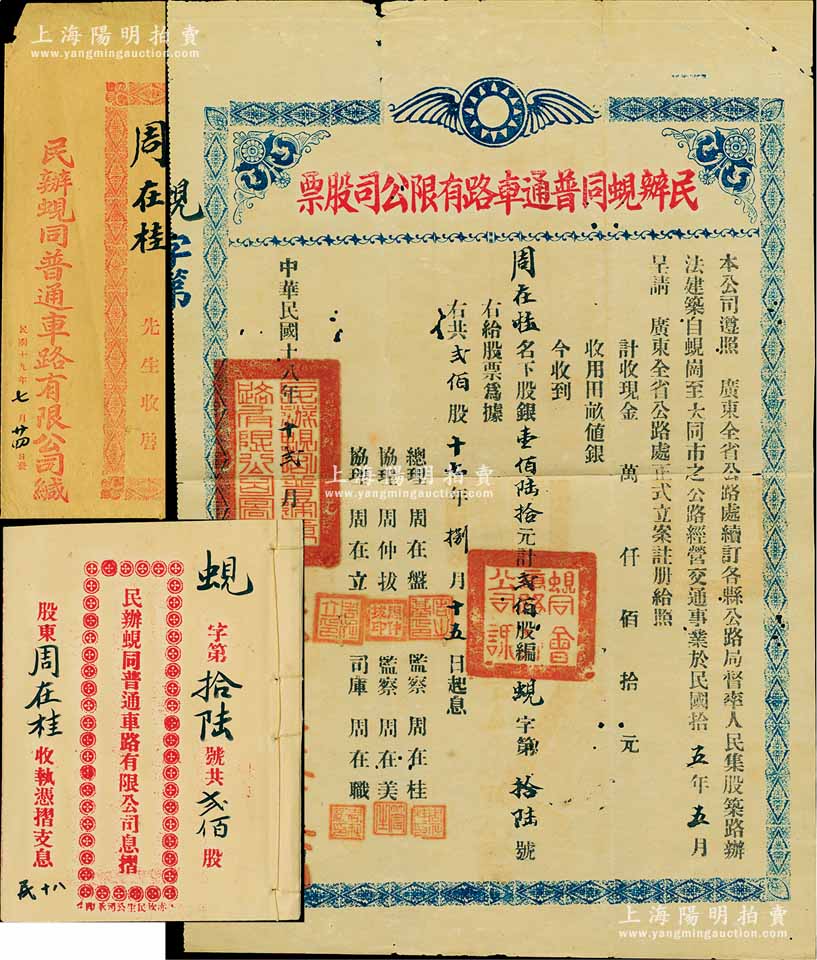 上海陽明拍賣
www.yangmingauction.com
周在桂
先生收啓
民辦蜆同普通車路有限公司緘
民國十九年七月廿四日發
上海陽明拍賣
www.yangmingauction.com
民辦蜆同普通車路有限公司股票
本公司遵照 廣東全省公路處續訂各縣公路局督率人民集股築路辦
法建築自蜆崗至大同市之公路經營交通事業於民國拾五年五月
呈請 廣東全省公路處正式立案註册給照
計收現金 萬 仟 佰 拾 元
收用田畝值銀
今收到
周在桂名下股銀壹佰陸拾元計貳佰股編蜆字第拾陸號
右給股票爲據
右共貳佰股 年捌月十五日起息
總理 周在盤 監察 周在桂
協理 周仲拔 監察 周在美
協理 周在立 司庫 周在職
中華民國十八年十貳月
蜆字第
上海陽明拍賣
www.yangmingauction.com
蜆字第拾陸號共貳佰股
民辦蜆同普通車路有限公司息摺
股東周在桂收執憑摺支息
民十八
上海陽明拍賣
www.yangmingauction.com